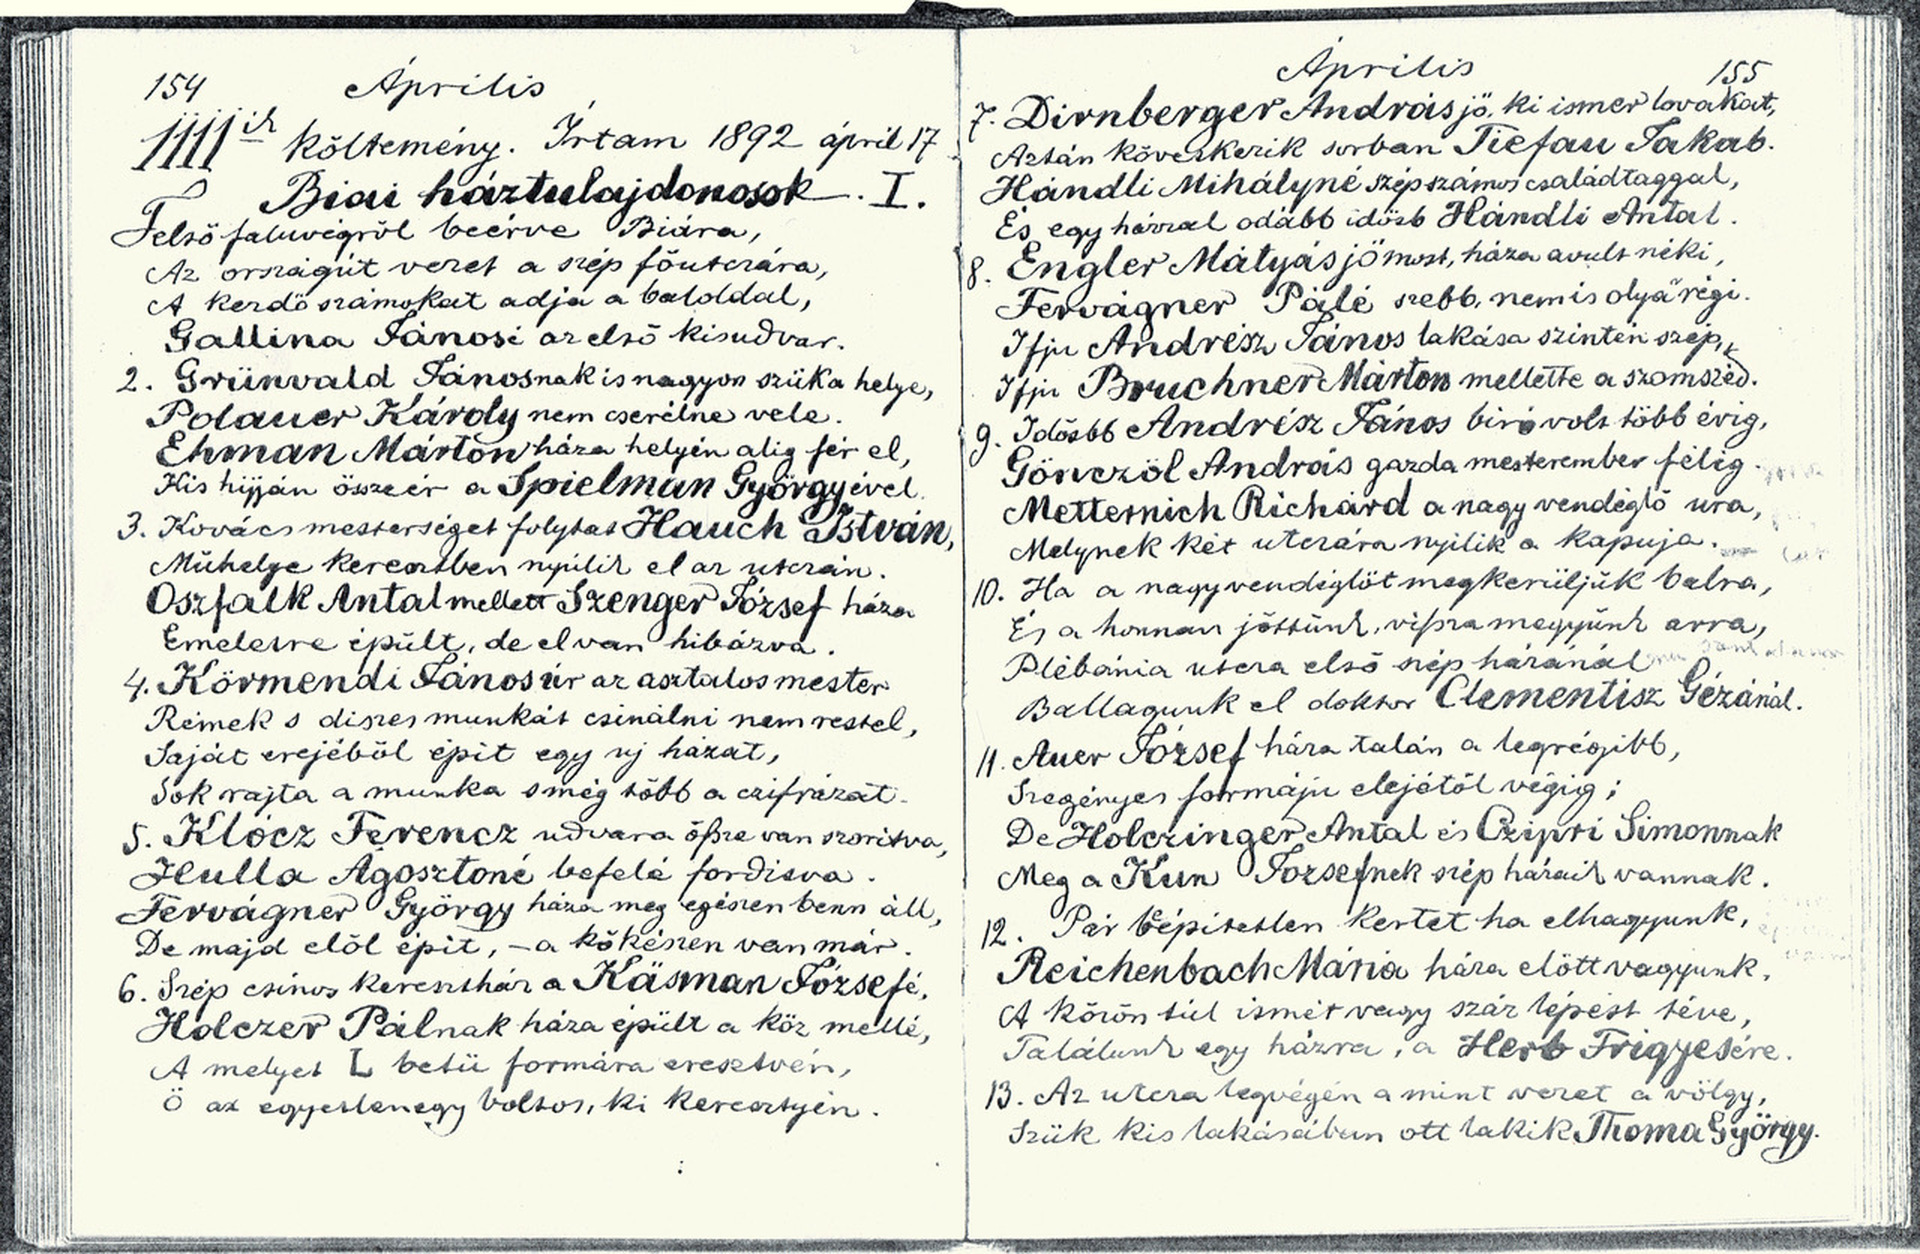 154 Április
11111ik költemény. Irtam 1892 ápril 17
Biai háztulajdonosok. I.
Felső faluvégről beérve Biára,
Az országút vezet a szép főutczára,
A kezdő számokat adja a baloldal,
Gallina Jánosé az első kisudvar.
2. Grünvald Jánosnak is nagyon szük a helye,
Polauer Károly nem cserélne vele.
Ehman Márton háza helyén alig fér el,
Kis hijján összeér a Spielman Györgyével.
3. Kovács mesterséget folytat Hauch István,
Műhelye keresztben nyúlik el az utczán.
Oszfalk Antal mellett Szenger József háza
Emeletre épült, de el van hibázva.
4. Körmendi János úr az asztalos mester
Remek s díszes munkát csinálni nem restel,
Saját erejéből épít egy uj házat,
Sok rajta a munka s még több a czifrázat.
5. Klócz Ferencz udvara össze van szorítva,
Hulla Ágosztoné befelé fordítva.
Fervágner György háza meg egészen benn áll,
De majd elől épít, – a kő készen van már.
6. Szép csinos keresztház a Käsman Józsefé,
Holczer Pálnak háza épült a köz mellé,
A melyet L betü formára eresztvén,
Ő az egyetlenegy boltos, ki keresztyén.
Április 155
7. Dirnberger András jő, ki ismer lovakat,
Aztán következik sorban Tiefau Jakab.
Hándli Mihályné szép számos családtaggal,
És egy házzal odább idősb Hándli Antal.
8. Engler Mátyás jő most, háza avult néki,
Fervágner Pálé szebb, nem is olyã régi.
Ifju Andrész János lakása szintén szép,
Ifju Bruchner Márton mellette a szomszéd.
9. Idősbb Andrész János biró volt több évig,
Gönczöl András gazda mesterember félig.
Metternich Richárd a nagy vendéglő ura,
Melynek két utczára nyilik a kapuja.
10. Ha a nagyvendéglőt megkerüljük balra,
És a honnan jöttünk, vissza megyünk arra,
Plébánia utcza első szép házánál
Ballagunk el doktor Clementisz Gézánál.
11. Auer József háza talán a legrégibb,
Szegényes formáju elejétől végig;
De Holczinger Antal és Czipri Simonnak
Meg a Kun Józsefnek szép házaik vannak.
12. Pár beépitetlen kertet ha elhagyunk,
Reichenbach Mária háza előtt vagyunk.
A közön túl ismét vagy száz lépést téve,
Találunk egy házra, a Herb Frigyesére.
13. Az utcza legvégén a mint vezet a völgy,
Szük kis lakásában ott lakik Thoma György.